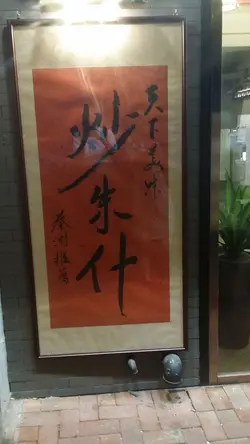 天下美味
炒朱什